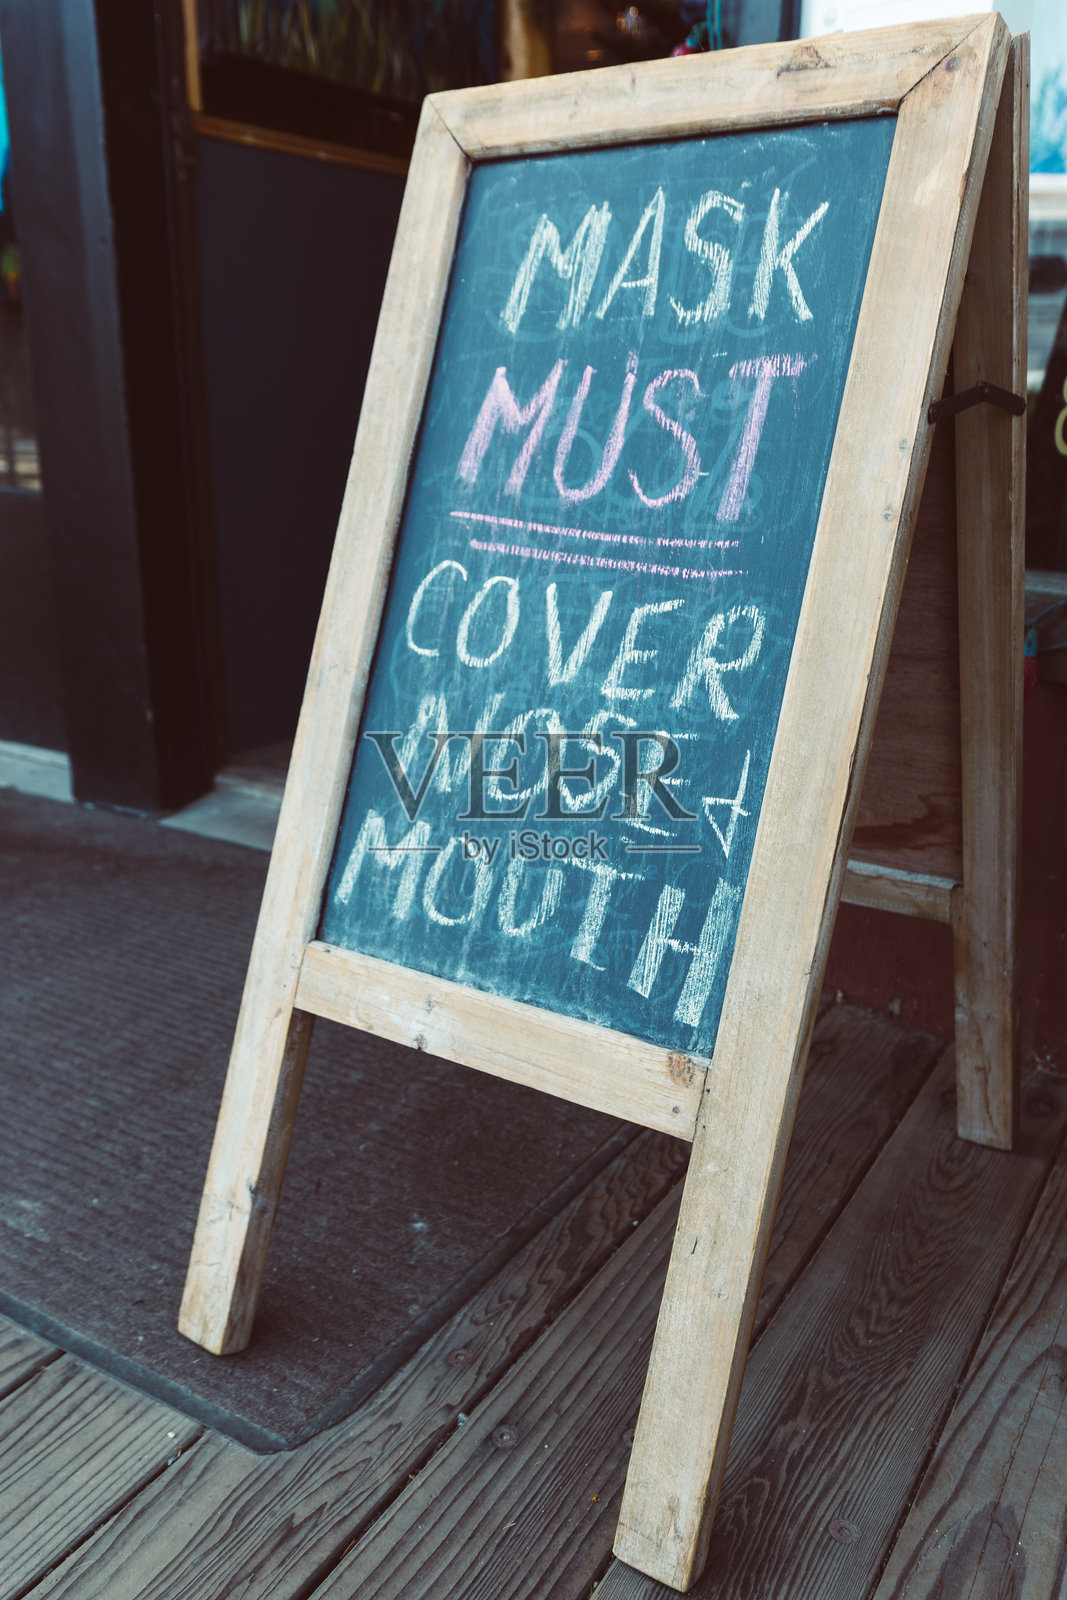 MASK
MUST
COVER
NOSE &
MOUTH
VEER
by iStock